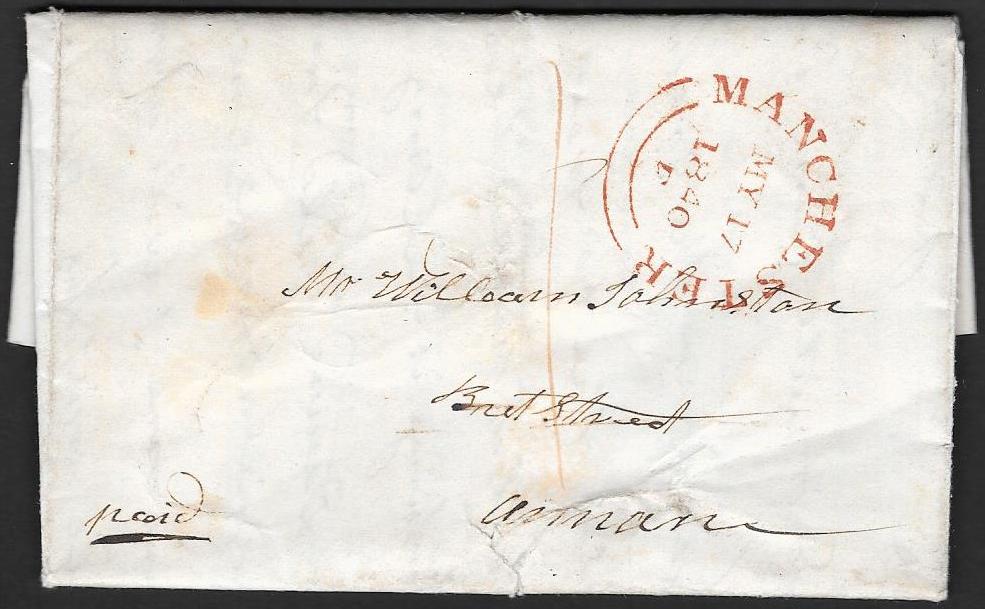 MANCHESTER
MY 17
1840
Mr William Johnston
Street
annan
paid